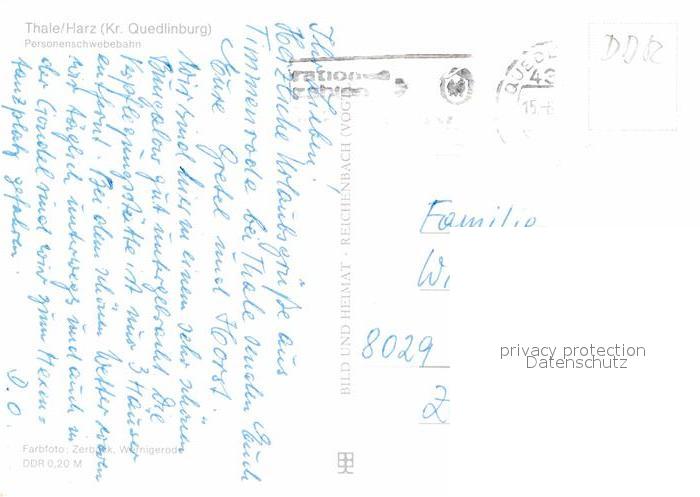 Thale/Harz (Kr. Quedlinburg)
Personenschwebebahn
Ihr Lieben!
Herzliche Urlaubsgrüße aus
Timmenrode bei Thale senden Euch
Eure Gretel und Horst.
Wir sind hier in einem sehr schönen
Bungalow gut untergebracht. Die
Verpflegungsstätte ist nur 3 Häuser
entfernt. Bei dem schönen Wetter waren
wir täglich unterwegs und auch in
der Gondel sind wir zum Hexen=
tanzplatz gefahren.
D. O.
Farbfoto: Zerback, Wernigerode
DDR 0,20 M
BILD UND HEIMAT · REICHENBACH (VOGT
ration
QUEDL
43
15.
DD62
Familie
Wi
8029
Z
privacy protection
Datenschutz